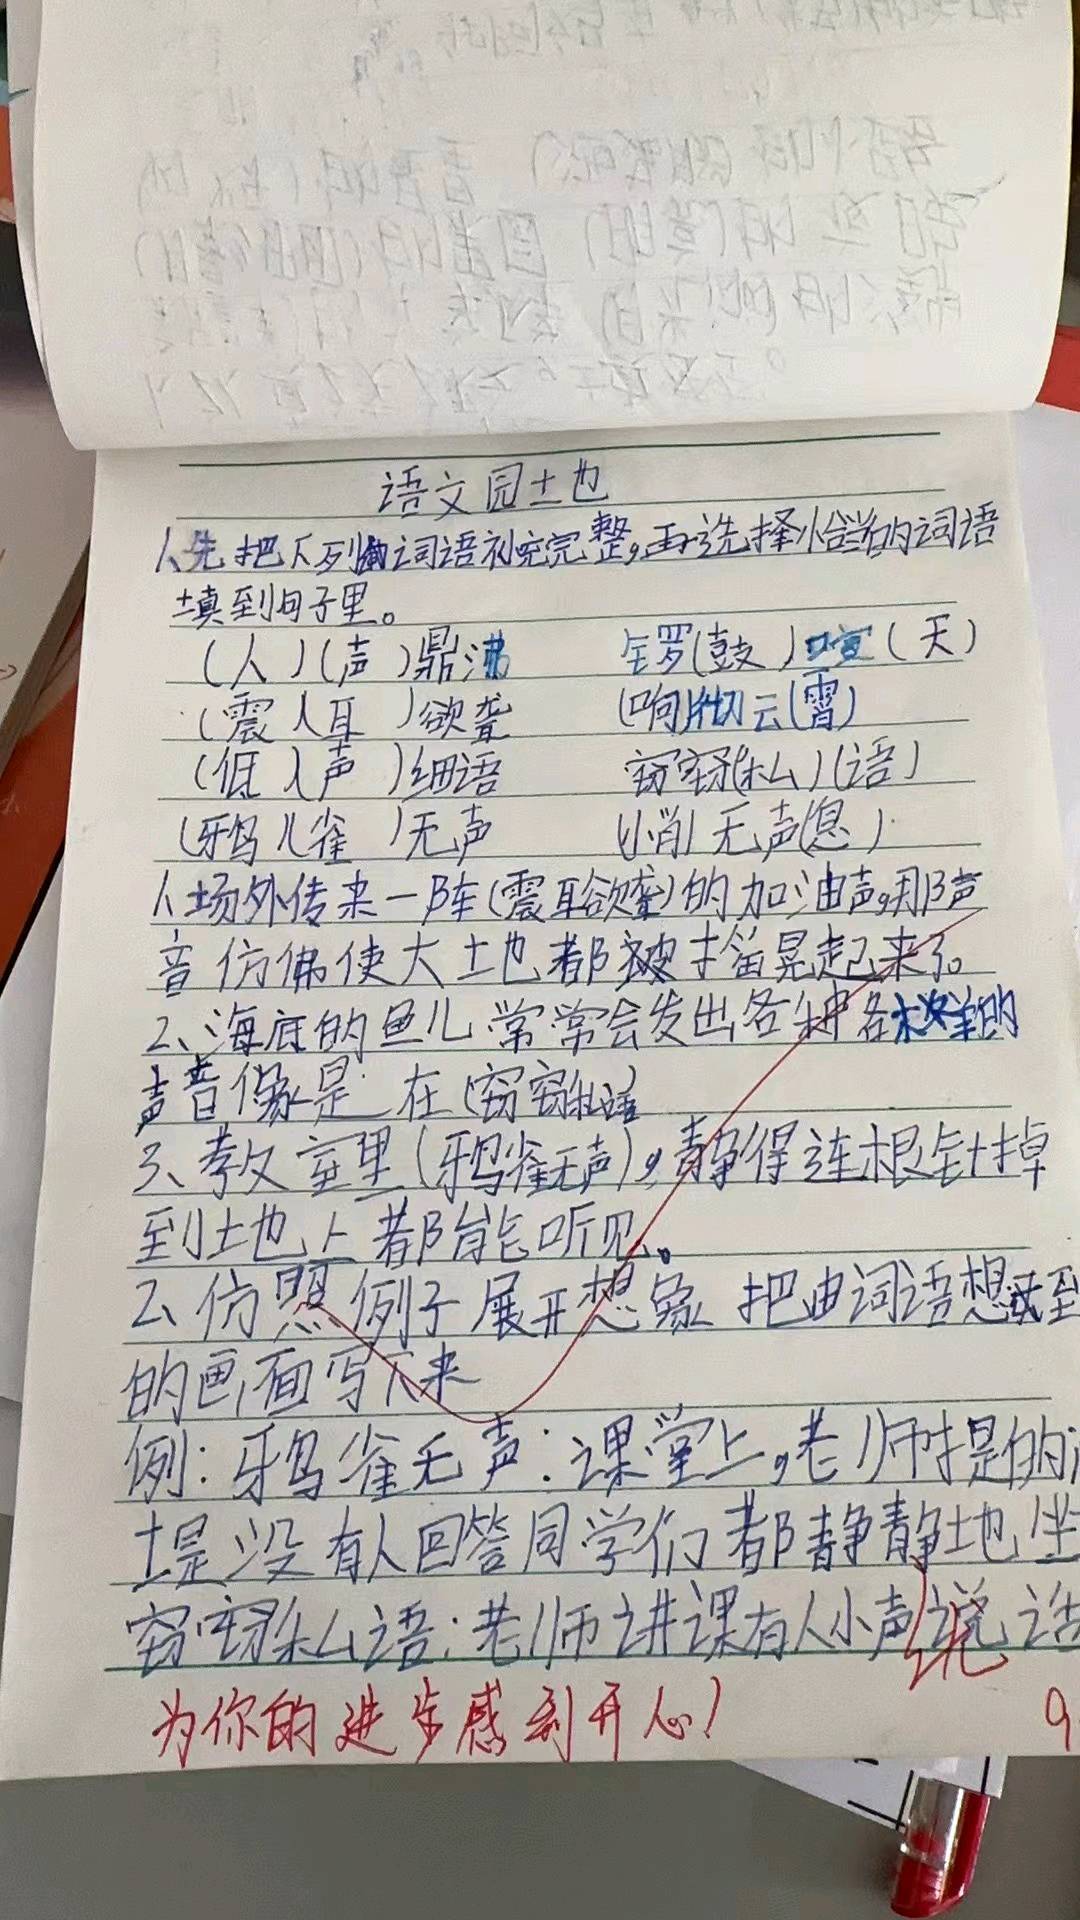 语文园地
1、先把下列的词语补充完整,再选择恰当的词语
填到句子里。
(人)(声)鼎沸 锣(鼓)喧(天)
(震)(耳)欲聋 (响)彻云(霄)
(低)(声)细语 窃窃(私)(语)
(鸦)(雀)无声 (悄)无声(息)
1、场外传来一阵(震耳欲聋)的加油声,那声
音仿佛使大地都被摇晃起来了。
2、海底的鱼儿常常会发出各种各样的
声音像是在(窃窃私语)
3、教室里(鸦雀无声),静得连根针掉
到地上都能听见。
2、仿照例子展开想象 把由词语想到
的画面写下来
例:鸦雀无声:课堂上,老师提的
堤没有人回答同学们都静静地坐
窃窃私语:老师讲课有人小声说话
为你的进步感到开心!